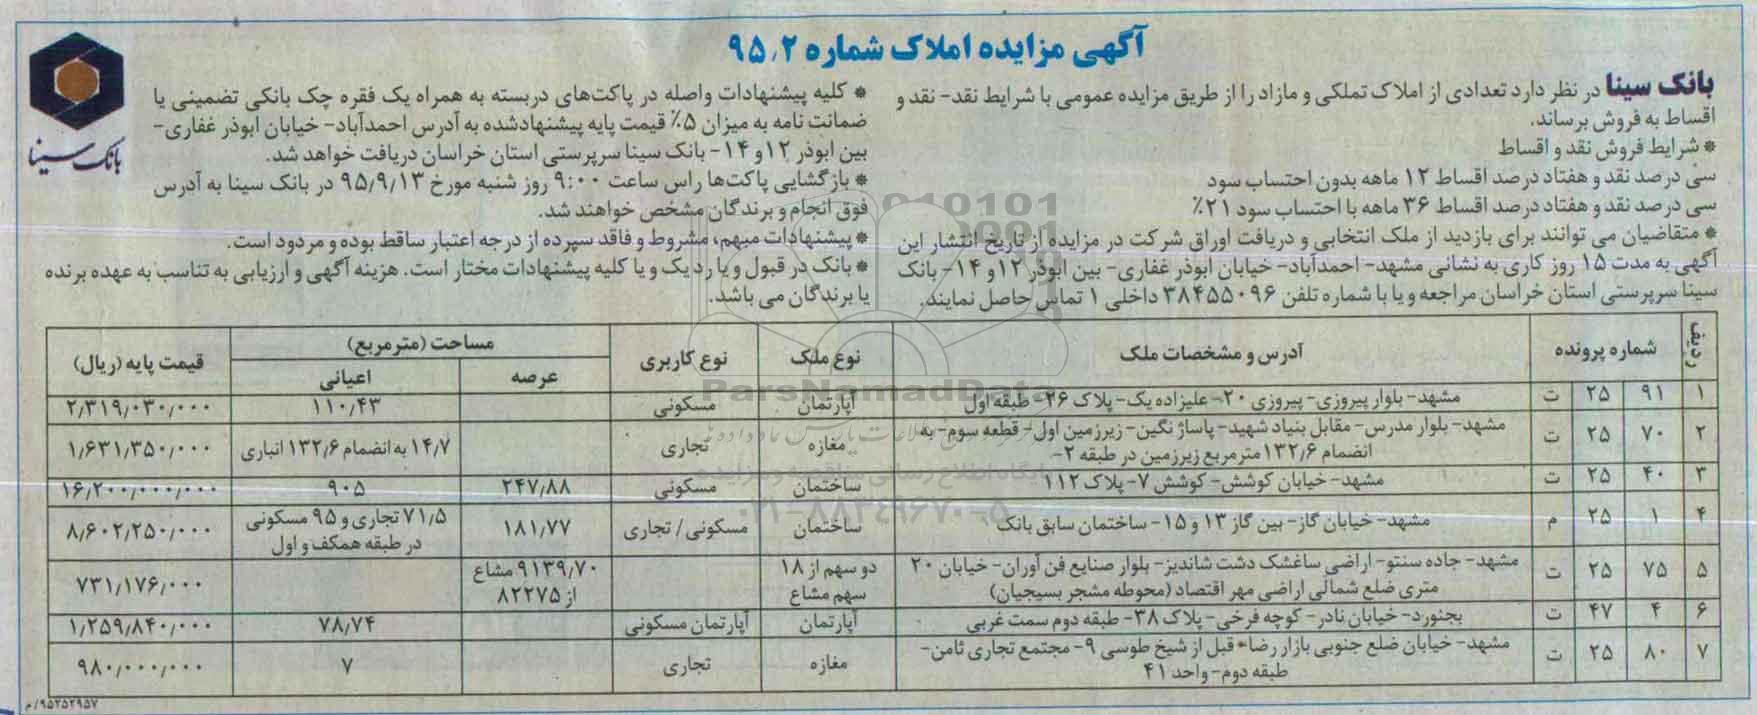 آگهی مزایده املاک شماره ۹۵٫۲
بانک سینا
بانک سینا در نظر دارد تعدادی از املاک تملکی و مازاد را از طریق مزایده عمومی با شرایط نقد- نقد و
اقساط به فروش برساند.
* شرایط فروش نقد و اقساط
سی درصد نقد و هفتاد درصد اقساط ۱۲ ماهه بدون احتساب سود
سی درصد نقد و هفتاد درصد اقساط ۳۶ ماهه با احتساب سود ۲۱٪
* متقاضیان می توانند برای بازدید از ملک انتخابی و دریافت اوراق شرکت در مزایده از تاریخ انتشار این
آگهی به مدت ۱۵ روز کاری به نشانی مشهد- احمدآباد- خیابان ابوذر غفاری- بین ابوذر ۱۲ و ۱۴- بانک
سینا سرپرستی استان خراسان مراجعه و یا با شماره تلفن ۳۸۴۵۵۰۹۶ داخلی ۱ تماس حاصل نمایند.
* کلیه پیشنهادات واصله در پاکت‌های دربسته به همراه یک فقره چک بانکی تضمینی یا
ضمانت نامه به میزان ۵٪ قیمت پایه پیشنهادشده به آدرس احمدآباد- خیابان ابوذر غفاری-
بین ابوذر ۱۲ و ۱۴- بانک سینا سرپرستی استان خراسان دریافت خواهد شد.
* بازگشایی پاکت‌ها راس ساعت ۹:۰۰ روز شنبه مورخ ۹۵/۹/۱۳ در بانک سینا به آدرس
فوق انجام و برندگان مشخص خواهند شد.
* پیشنهادات مبهم، مشروط و فاقد سپرده از درجه اعتبار ساقط بوده و مردود است.
* بانک در قبول و یا رد یک و یا کلیه پیشنهادات مختار است. هزینه آگهی و ارزیابی به تناسب به عهده برنده
یا برندگان می باشد.
ردیف شماره پرونده آدرس و مشخصات ملک نوع ملک نوع کاربری مساحت (مترمربع) قیمت پایه (ریال)
عرصه اعیانی
۱ ۹۱ ۲۵ ت مشهد- بلوار پیروزی- پیروزی ۲۰- علیزاده یک- پلاک ۳۶- طبقه اول آپارتمان مسکونی ۱۱۰٫۴۳ ۲٫۳۱۹٫۰۳۰٫۰۰۰
۲ ۷۰ ۲۵ ت مشهد- بلوار مدرس- مقابل بنیاد شهید- پاساژ نگین- زیرزمین اول- قطعه سوم- به
انضمام ۱۳۲٫۶ مترمربع زیرزمین در طبقه ۲- مغازه تجاری ۱۴٫۷ به انضمام ۱۳۲٫۶ انباری ۱٫۶۳۱٫۳۵۰٫۰۰۰
۳ ۴۰ ۲۵ ت مشهد- خیابان کوشش- کوشش ۷- پلاک ۱۱۲ ساختمان مسکونی ۲۴۷٫۸۸ ۹۰۵ ۱۶٫۲۰۰٫۰۰۰٫۰۰۰
۴ ۱ ۲۵ م مشهد- خیابان گاز- بین گاز ۱۳ و ۱۵- ساختمان سابق بانک ساختمان مسکونی / تجاری ۱۸۱٫۷۷ ۷۱٫۵ تجاری و ۹۵ مسکونی
در طبقه همکف و اول ۸٫۶۰۲٫۲۵۰٫۰۰۰
۵ ۷۵ ۲۵ ت مشهد- جاده سنتو- اراضی ساغشک دشت شاندیز- بلوار صنایع فن آوران- خیابان ۲۰
متری ضلع شمالی اراضی مهر اقتصاد (محوطه مشجر بسیجیان) دو سهم از ۱۸
سهم مشاع ۹۱۳۹٫۷۰ مشاع
از ۸۲۲۷۵ ۷۳۱٫۱۷۶٫۰۰۰
۶ ۴ ۴۷ ت بجنورد- خیابان نادر- کوچه فرخی- پلاک ۳۸- طبقه دوم سمت غربی آپارتمان آپارتمان مسکونی ۷۸٫۷۴ ۱٫۲۵۹٫۸۴۰٫۰۰۰
۷ ۸۰ ۲۵ ت مشهد- خیابان ضلع جنوبی بازار رضا* قبل از شیخ طوسی ۹- مجتمع تجاری ثامن-
طبقه دوم- واحد ۴۱ مغازه تجاری ۷ ۹۸۰٫۰۰۰٫۰۰۰
۹۵۲۵۲۹۵۷/م
ParsNamadData
۰۲۱-۸۸۳۴۹۶۷۰-۵